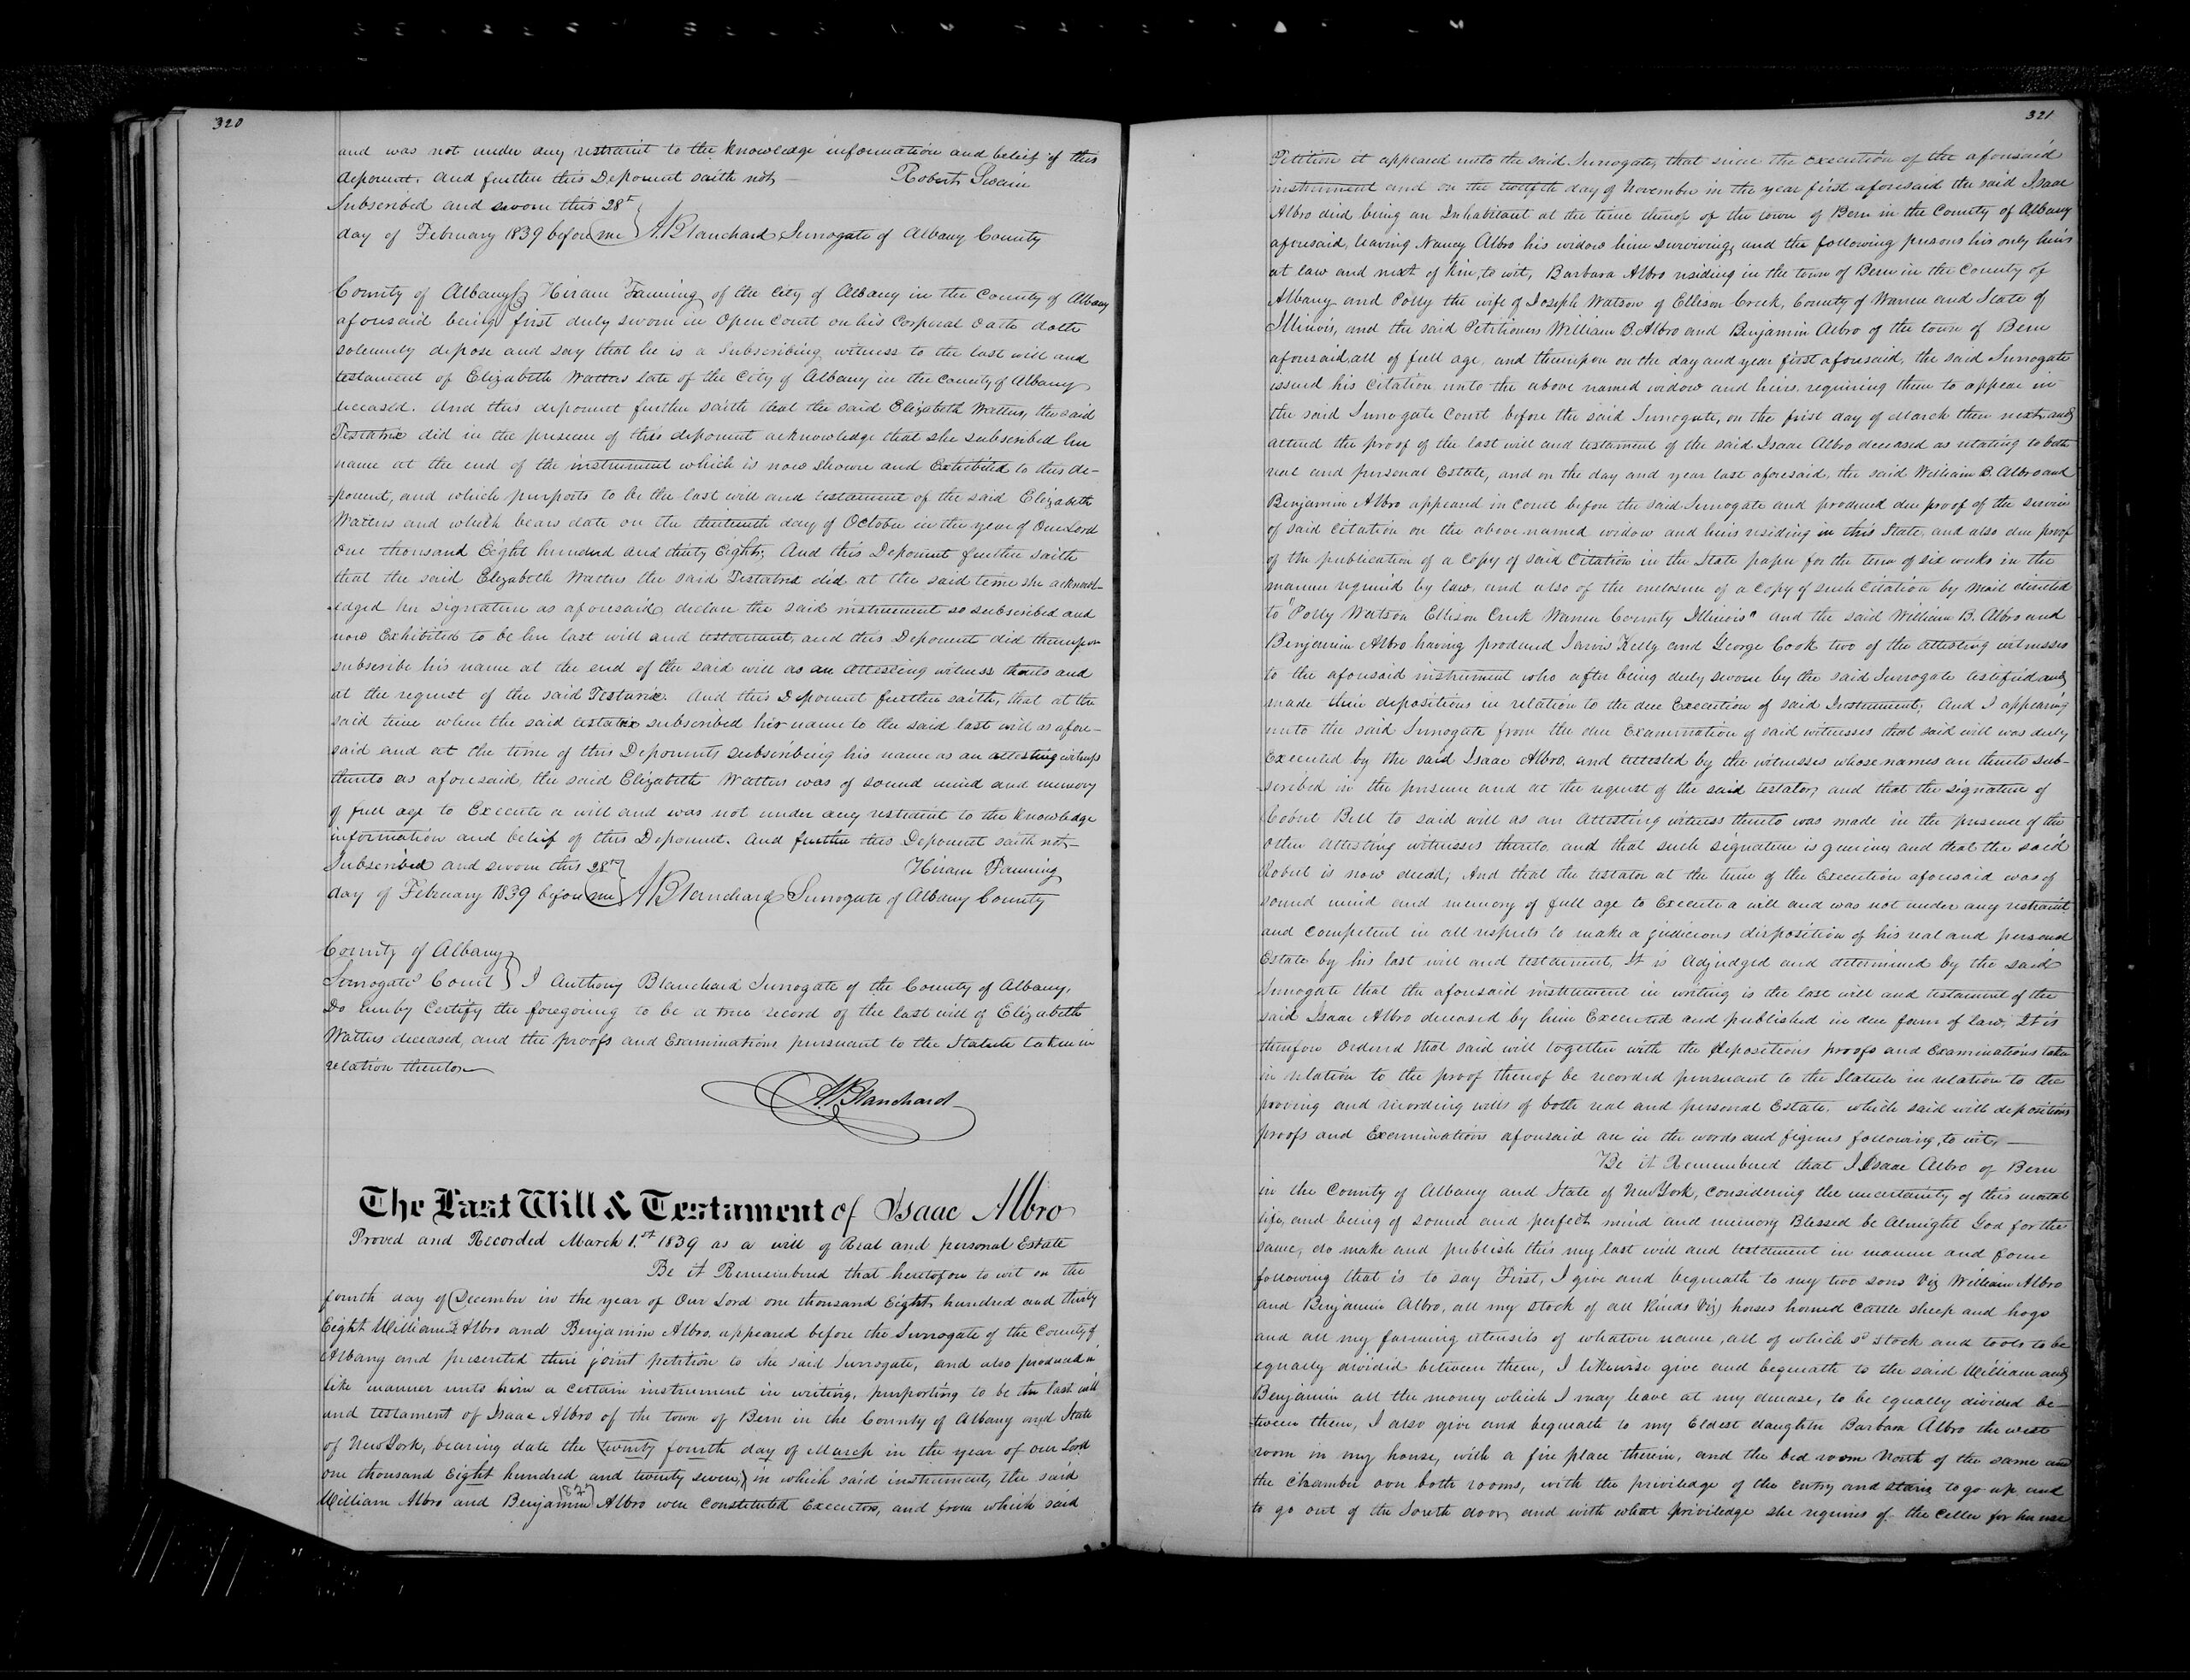 320
and was not under any restraint to the knowledge information and belief of this
deponent. And further this Deponent saith not, — Robert Swain
Subscribed and sworn this 28th
day of February 1839 before me A. Blanchard Surrogate of Albany County
County of Albany ss Hiram Fanning of the City of Albany in the County of Albany
aforesaid being first duly sworn in Open Court on his Corporal Oath doth
solemnly depose and say that he is a Subscribing witness to the last will and
testament of Elizabeth Watters late of the City of Albany in the County of Albany
deceased. And this deponent further saith that the said Elizabeth Watters, the said
Testatrix did in the presence of this deponent acknowledge that she subscribed her
name at the end of the instrument which is now shown and Exhibited to this de-
-ponent, and which purports to be the last will and testament of the said Elizabeth
Watters and which bears date on the thirteenth day of October in the year of Our Lord
One thousand Eight hundred and thirty Eight; And this Deponent further saith
that the said Elizabeth Watters the said Testatrix did at the said time she acknowl-
-edged her signature as aforesaid, declare the said instrument so subscribed and
now Exhibited to be her last will and testament, and this Deponent did thereupon
subscribe his name at the end of the said will as an attesting witness thereto and
at the request of the said Testatrix. And this Deponent further saith, that at the
said time when the said testatrix subscribed his name to the said last will as afore-
said and at the time of this Deponents subscribing his name as an attesting witness
thereto as aforesaid, the said Elizabeth Watters was of sound mind and memory
of full age to Execute a will and was not under any restraint to the knowledge
information and belief of this Deponent. And further this Deponent saith not —
Subscribed and sworn this 28th Hiram Fanning
day of February 1839 before me A Blanchard Surrogate of Albany County
County of Albany
Surrogates Court } I Anthony Blanchard Surrogate of the County of Albany,
Do hereby Certify the foregoing to be a true record of the last will of Elizabeth
Watters deceased, and the proofs and Examinations pursuant to the Statute taken in
relation thereto
A. Blanchard
The Last Will & Testament of Isaac Albro
Proved and Recorded March 1.st 1839 as a will of Real and personal Estate
Be it Remembered that heretofore to wit on the
fourth day of December in the year of Our Lord one thousand Eight hundred and thirty
Eight William B Albro and Benjamin Albro, appeared before the Surrogate of the County of
Albany and presented their joint petition to the said Surrogate, and also produced in
like manner unto him a certain instrument in writing, purporting to be the last will
and testament of Isaac Albro of the town of Bern in the County of Albany and State
of New York, bearing date the twenty fourth day of March in the year of our Lord
one thousand Eight hundred and twenty seven, in which said instrument, the said
1827
William Albro and Benjamin Albro were Constituted Executors, and from which said
321
Petition it appeared unto the said Surrogate, that since the execution of the aforesaid
instrument and on the twelfth day of November in the year first aforesaid the said Isaac
Albro died being an Inhabitant at the time thereof of the town of Bern in the County of Albany
aforesaid, leaving Nancy Albro his widow him surviving, and the following persons his only heirs
at law and next of kin, to wit, Barbara Albro residing in the town of Bern in the County of
Albany and Polly the wife of Joseph Watson of Ellison Creek, County of Warren and State of
Illinois, and the said Petitioners William B. Albro and Benjamin Albro of the town of Bern
aforesaid, all of full age, and thereupon on the day and year first aforesaid, the said Surrogate
issued his Citation unto the above named widow and heirs, requiring them to appear in
the said Surrogate Court before the said Surrogate, on the first day of March then next and
attend the proof of the last will and testament of the said Isaac Albro deceased as relating to both
real and personal Estate, and on the day and year last aforesaid, the said William B. Albro and
Benjamin Albro appeared in Court before the said Surrogate and produced due proof of the service
of said Citation on the above named widow and heirs residing in this State, and also due proof
of the publication of a copy of said Citation in the State paper for the term of six weeks in the
manner required by law, and also of the enclosure of a copy of such Citation by Mail directed
to "Polly Watson Ellison Creek Warren County Illinois" and the said William B. Albro and
Benjamin Albro having produced Jarvis Kelly and George Cook two of the attesting witnesses
to the aforesaid instrument who after being duly sworn by the said Surrogate testified and
made their depositions in relation to the due Execution of said Instrument; And I appearing
unto the said Surrogate from the due Examination of said witnesses that said will was duly
Executed by the said Isaac Albro, and attested by the witnesses whose names are thereto sub-
-scribed in the presence and at the request of the said testator, and that the signature of
Robert Bell to said will as an Attesting witness thereto was made in the presence of the
other attesting witnesses thereto, and that such signature is genuine, and that the said
Robert is now dead; And that the testator at the time of the Execution aforesaid was of
sound mind and memory of full age to Execute a will and was not under any restraint
and competent in all respects to make a judicious disposition of his real and personal
Estate by his last will and testament, It is Adjudged and determined by the said
Surrogate that the aforesaid instrument in writing is the last will and testament of the
said Isaac Albro deceased by him Executed and published in due form of law, It is
therefore Ordered that said will together with the depositions proofs and Examinations taken
in relation to the proof thereof be recorded pursuant to the Statute in relation to the
proving and recording wills of both real and personal Estate, which said will depositions
proofs and Examinations aforesaid are in the words and figures following, to wit, —
Be it Remembered that I Isaac Albro of Bern
in the County of Albany and State of New York, considering the uncertainty of this mortal
life, and being of sound and perfect mind and memory Blessed be Almighty God for the
same, do make and publish this my last will and testament in manner and form
following that is to say First, I give and bequeath to my two sons Viz William Albro
and Benjamin Albro, all my stock of all Kinds Viz horses horned Cattle sheep and hogs
and all my farming utensils of whatever name, all of which sd stock and tools to be
equally divided between them, I likewise give and bequeath to the said William and
Benjamin all the money which I may leave at my decease, to be equally divided be-
tween them, I also give and bequeath to my Eldest daughter Barbara Albro the west
room in my house, with a fire place therein, and the bed room North of the same and
the Chamber over both rooms, with the priviledge of the Entry and stairs to go up and
to go out of the South door, and with what priviledge she requires of the Celler for her use